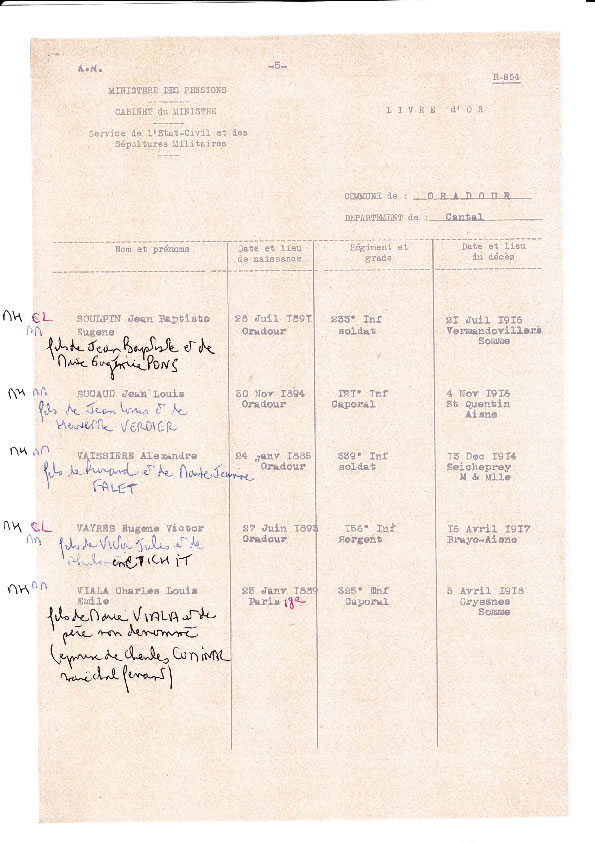 A.M.
-5-
R-854
MINISTERE DES PENSIONS
CABINET du MINISTRE
Service de l'Etat-Civil et des
Sépultures Militaires
LIVRE d'OR
COMMUNE de : ORADOUR
DEPARTEMENT de : Cantal
Nom et prénoms
Date et lieu
de naissance
Régiment et
grade
Date et lieu
du décès
MH CL
SOULPIN Jean Baptiste
Eugene
28 Juil 1897
Oradour
233° Inf
soldat
21 Juil 1916
Vermandovillers
Somme
fils de Jean Baptiste et de
Marie Eugénie PONS
MH
SUCAUD Jean Louis
30 Nov 1894
Oradour
Inf
Caporal
4 Nov 1918
St Quentin
Aisne
fils de Jean Louis et de
VERDIER
MH
VAISSIERE Alexandre
24 Janv 1885
Oradour
339° Inf
soldat
13 Dec 1914
Seicheprey
M & Mlle
fils de et de Marie Jeanne
FALET
MH CL
VAYRES Eugene Victor
27 Juin 1893
Oradour
156° Inf
Sergent
16 Avril 1917
Braye-Aisne
fils de Victor Jules et de
MH
VIALA Charles Louis
Emile
23 Janv 1889
Paris 18e
325° Inf
Caporal
5 Avril 1918
Gryesnes
Somme
fils de Marie VIALA et de
père non dénommé
(epouse de Charles
maréchal ferrant)